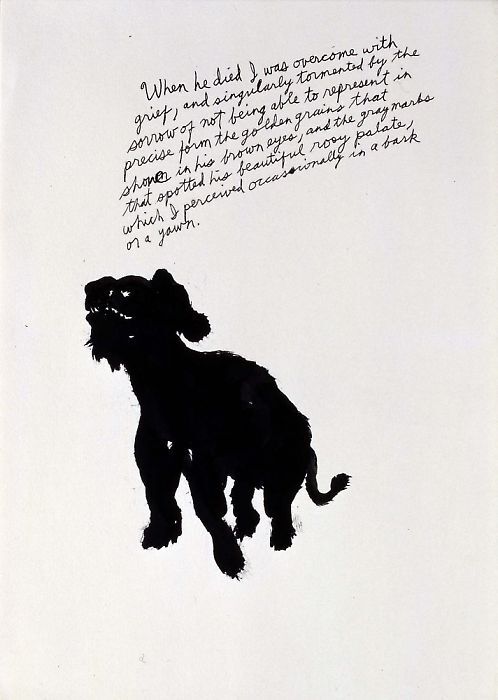 When he died I was overcome with
grief, and singularly tormented by the
sorrow of not being able to represent in
precise form the golden grains that
shone in his brown eyes, and the gray marks
that spotted his beautiful rosy palate,
which I perceived occassionally in a bark
or a yawn.